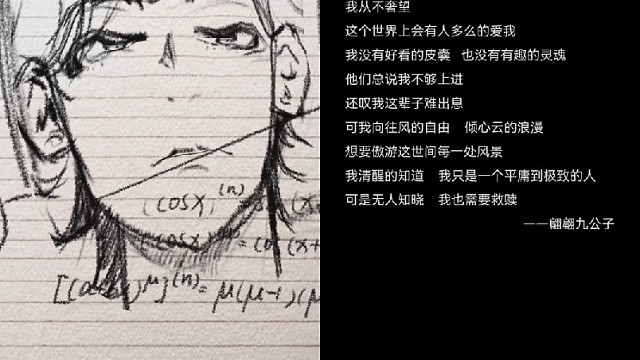 (cosx)^(n)
(cosx) = cos(x+
]^(n) = μ(μ-1)(μ
我从不奢望
这个世界上会有人多么的爱我
我没有好看的皮囊 也没有有趣的灵魂
他们总说我不够上进
还叹我这辈子难出息
可我向往风的自由 倾心云的浪漫
想要傲游这世间每一处风景
我清醒的知道 我只是一个平庸到极致的人
可是无人知晓 我也需要救赎
——翩翩九公子